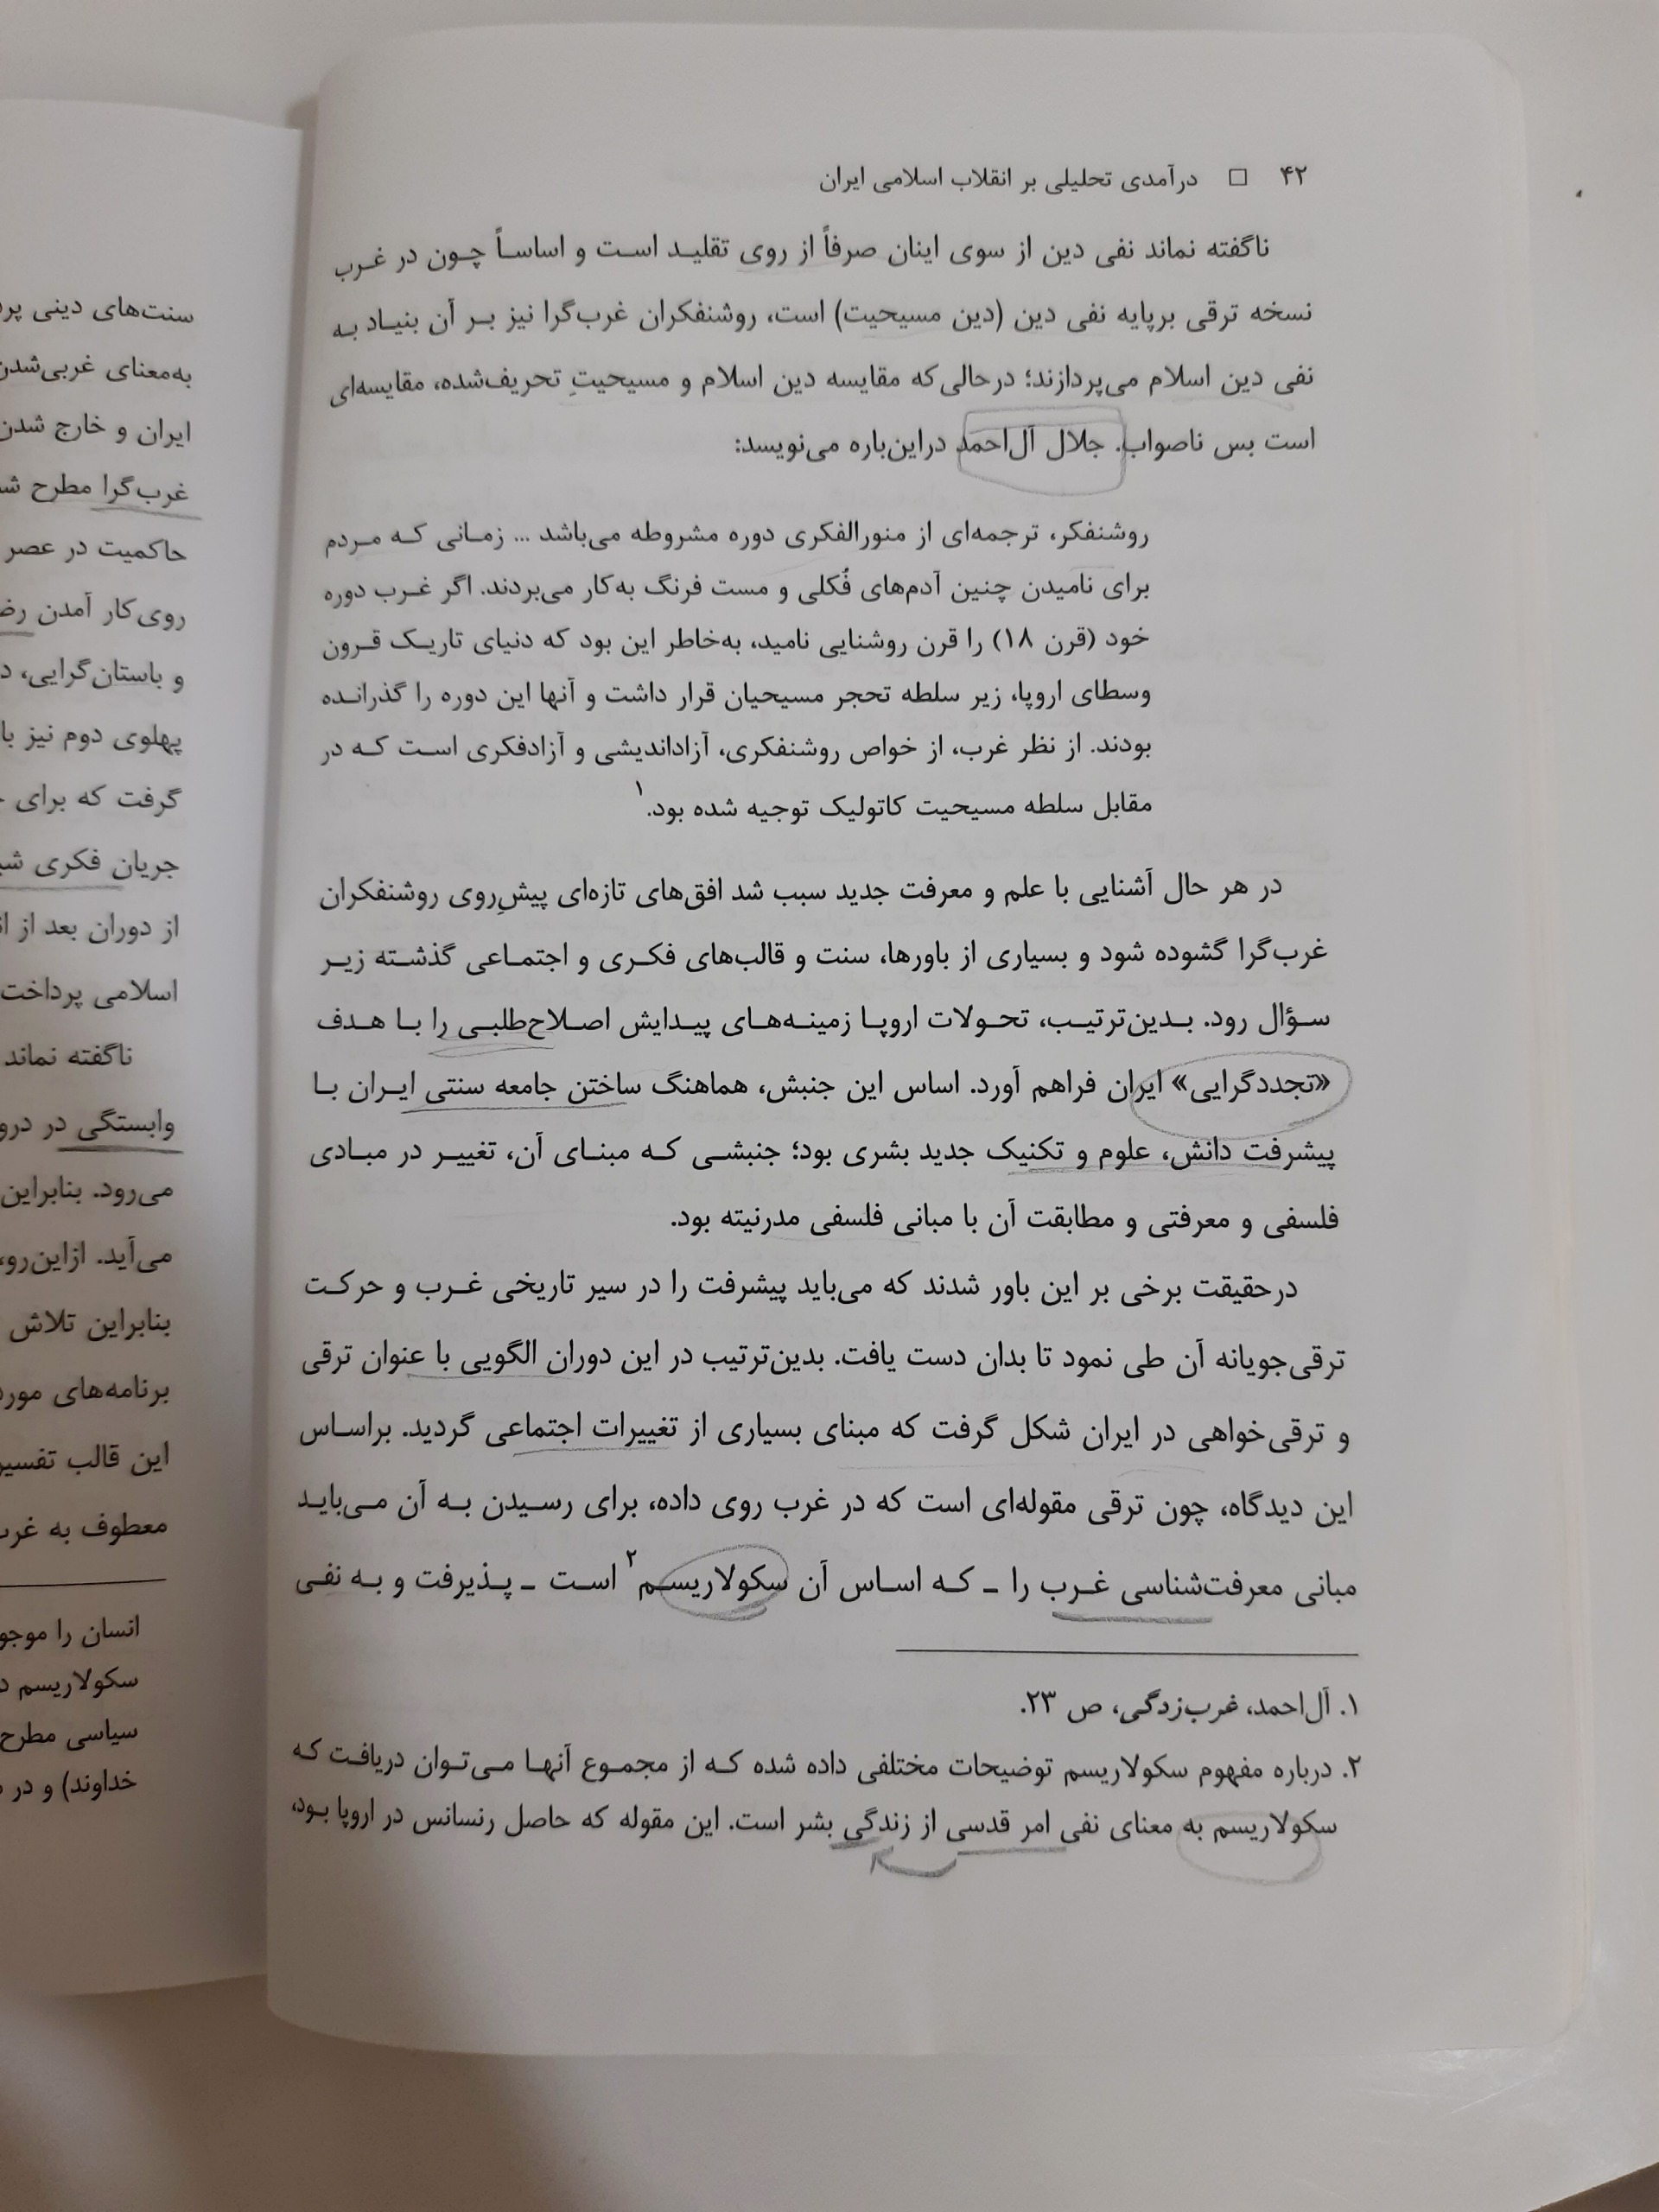 ۴۲ □ درآمدی تحلیلی بر انقلاب اسلامی ایران
ناگفته نماند نفی دین از سوی اینان صرفاً از روی تقلید است و اساساً چون در غرب
نسخه ترقی برپایه نفی دین (دین مسیحیت) است، روشنفکران غرب‌گرا نیز بر آن بنیاد به
نفی دین اسلام می‌پردازند؛ درحالی‌که مقایسه دین اسلام و مسیحیتِ تحریف‌شده، مقایسه‌ای
است بس ناصواب. جلال آل‌احمد دراین‌باره می‌نویسد:
روشنفکر، ترجمه‌ای از منورالفکری دوره مشروطه می‌باشد ... زمانی که مردم
برای نامیدن چنین آدم‌های فُکلی و مست فرنگ به‌کار می‌بردند. اگر غرب دوره
خود (قرن ۱۸) را قرن روشنایی نامید، به‌خاطر این بود که دنیای تاریک قرون
وسطای اروپا، زیر سلطه تحجر مسیحیان قرار داشت و آنها این دوره را گذرانده
بودند. از نظر غرب، از خواص روشنفکری، آزاداندیشی و آزادفکری است که در
مقابل سلطه مسیحیت کاتولیک توجیه شده بود.۱
در هر حال آشنایی با علم و معرفت جدید سبب شد افق‌های تازه‌ای پیشِ‌روی روشنفکران
غرب‌گرا گشوده شود و بسیاری از باورها، سنت و قالب‌های فکری و اجتماعی گذشته زیر
سؤال رود. بدین‌ترتیب، تحولات اروپا زمینه‌های پیدایش اصلاح‌طلبی را با هدف
«تجددگرایی» ایران فراهم آورد. اساس این جنبش، هماهنگ ساختن جامعه سنتی ایران با
پیشرفت دانش، علوم و تکنیک جدید بشری بود؛ جنبشی که مبنای آن، تغییر در مبادی
فلسفی و معرفتی و مطابقت آن با مبانی فلسفی مدرنیته بود.
درحقیقت برخی بر این باور شدند که می‌باید پیشرفت را در سیر تاریخی غرب و حرکت
ترقی‌جویانه آن طی نمود تا بدان دست یافت. بدین‌ترتیب در این دوران الگویی با عنوان ترقی
و ترقی‌خواهی در ایران شکل گرفت که مبنای بسیاری از تغییرات اجتماعی گردید. براساس
این دیدگاه، چون ترقی مقوله‌ای است که در غرب روی داده، برای رسیدن به آن می‌باید
مبانی معرفت‌شناسی غرب را ـ که اساس آن سکولاریسم۲ است ـ پذیرفت و به نفی
۱. آل‌احمد، غرب‌زدگی، ص ۲۳.
۲. درباره مفهوم سکولاریسم توضیحات مختلفی داده شده که از مجموع آنها می‌توان دریافت که
سکولاریسم به معنای نفی امر قدسی از زندگی بشر است. این مقوله که حاصل رنسانس در اروپا بود،
سنت‌های دینی
به‌معنای غربی‌شدن
ایران و خارج شدن
غرب‌گرا مطرح
حاکمیت در عصر
روی‌کار آمدن
و باستان‌گرایی،
پهلوی دوم نیز
گرفت که برای
جریان فکری
از دوران بعد از
اسلامی پرداخت
ناگفته نماند
وابستگی در
می‌رود. بنابراین
می‌آید. ازاین‌رو،
بنابراین تلاش
برنامه‌های
این قالب
معطوف به
انسان را
سکولاریسم
سیاسی مطرح
خداوند) و در